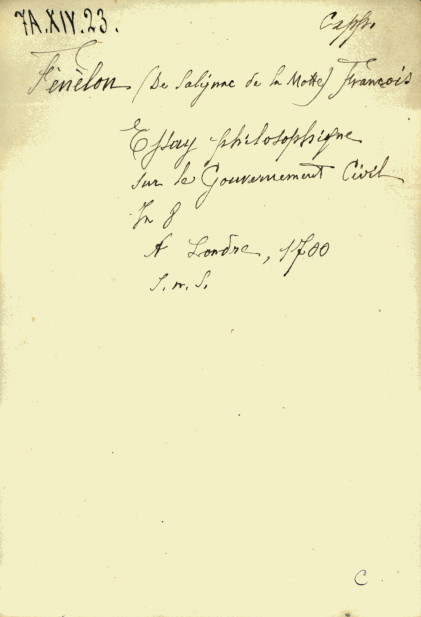 7A.XIV.23.
Capp.
Fénèlon (De Salignac de la Motte) François
Essay philosophique
sur le Gouvernement Civil
In 8
A Londre, 1700
S. n. S.
C